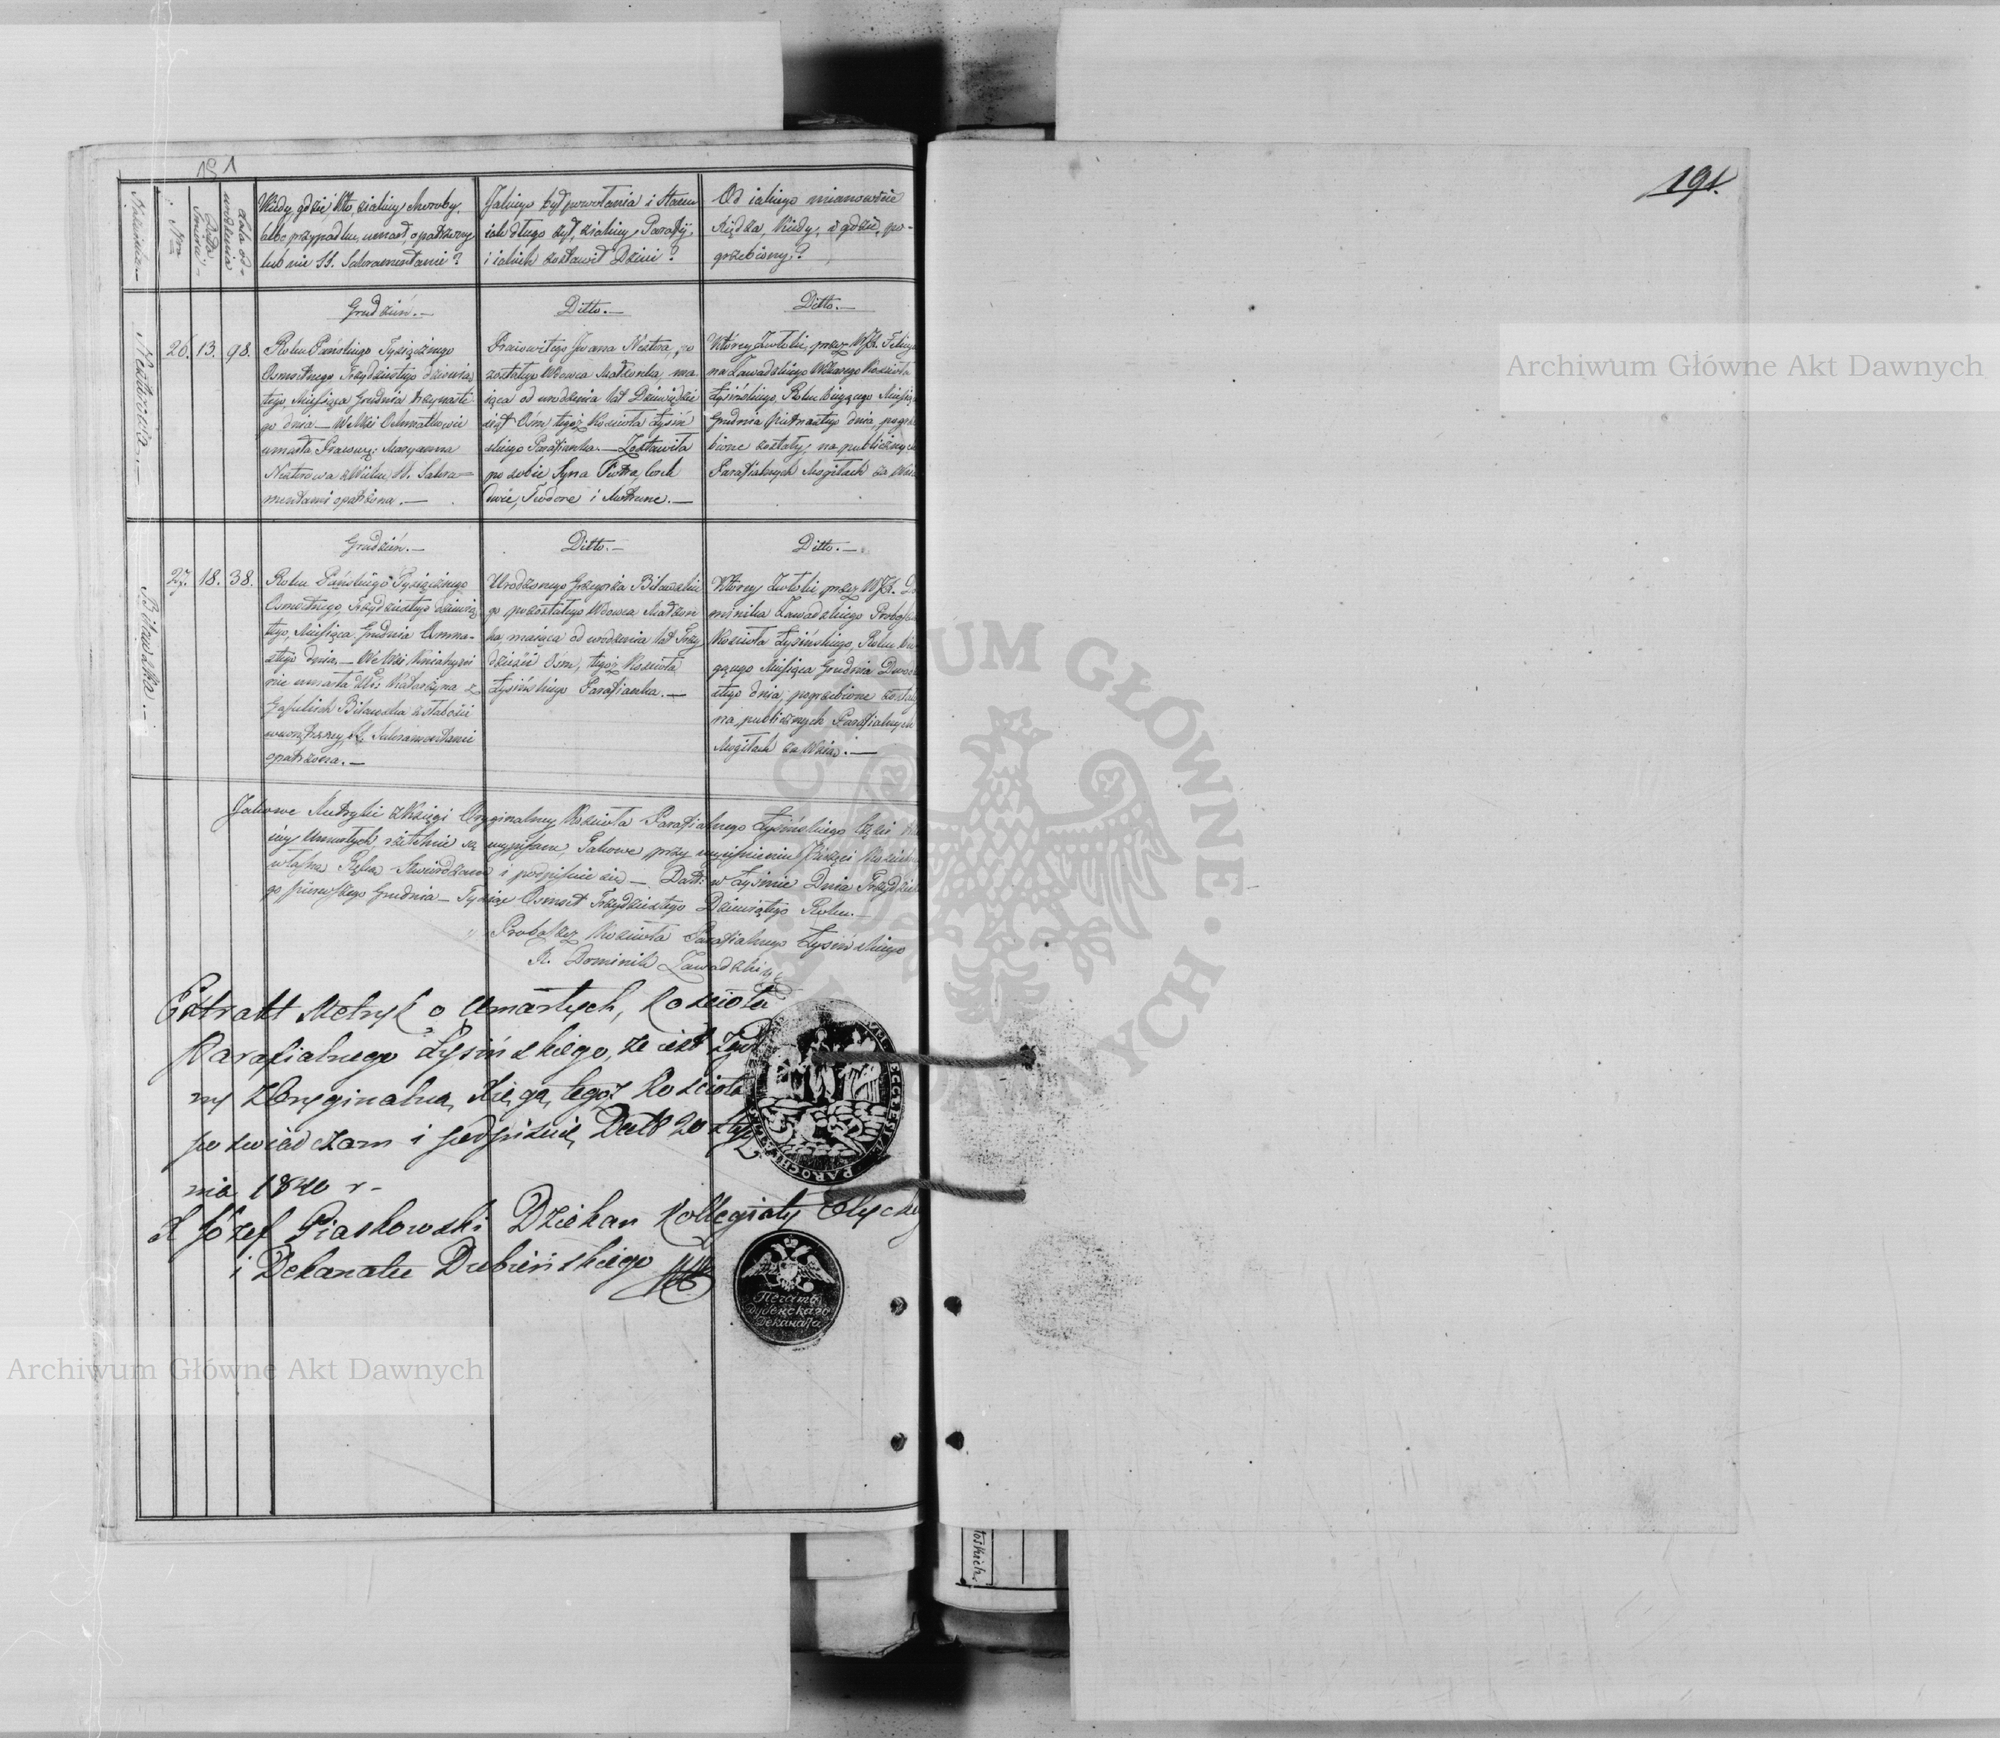 191
Nazwiska.—
Nro
Data Śmierci.—
Lata od urodzenia
Kiedy, gdzie, kto, z jakiey choroby,
albo przypadku, umarł, opatrzony
lub nie SS. Sakramentami?
Jakiego był powołania i Stanu
jak długo żył, z jakiey Parafij,
i jakich zostawił Dzieci?
Od jakiego mianowicie
Xiędza, kiedy, i gdzie, po-
grzebiony?
Nestorowa.—
26. 13. 98.
Grudzień.—
Roku Pańskiego Tysiącznego
Osmsetnego Trzydziestego dziewią
tego, Miesiąca Grudnia trzynaste
go dnia.— We Wsi
umarła Pracow: Maryanna
Nestorowa z Wieku, SS. Sakra=
mentami opatrzona.—
Ditto.—
Pracowitego Jwana Nestora, po
zostałego Wdowca Małżonka, ma
jąca od urodzenia lat Dziewięćdzie
siąt Ośm tegoż Kościoła Łysiń
skiego Parafianka.— Zostawiła
po sobie Syna Piotra, Corek
dwie, Fiodorę i Motrunę.—
Ditto.—
Ktorey zwłoki, przez WJX. Felicya
na Zawadzkiego Wikarego Kościoła
Łysińskiego, Roku bieżącego Miesiąca
Grudnia Piętnastego dnia, pogrze
bione zostały, na publicznych
Parafialnych Mogiłach za Wsią
Biławska.—
27. 18. 38.
Grudzień.—
Roku Pańskiego Tysiącznego
Osmsetnego Trzydziestego dziewią
tego, Miesiąca Grudnia Osmna-
stego dnia.— We Wsi Kniahyni
nie umarła WJ: Katarzyna z
Biławska z słabości
wewnętrzney, SS. Sakramentami
opatrzona.—
Ditto.—
Urodzonego Grzegorza Biławskie
go pozostałego Wdowca Małżon
ka mająca od urodzenia lat Trzy
dzieści Ośm, tegoż Kościoła
Łysińskiego Parafianka.—
Ditto.—
Ktorey zwłoki przez WJX. Do
minika Zawadzkiego Proboszcza
Kościoła Łysińskiego, Roku bie
żącego Miesiąca Grudnia Dwudzie
stego dnia, pogrzebione zostały
na publicznych Parafialnych
Mogiłach za Wsią.—
Jakowe Metryki z Xsięgi Oryginalney Kościoła Parafialnego Łysińskiego
Umarłych, rzetelnie są wypisane, Jakowe przy wyciśnieniu Pieczęci Kościelney
własną Ręką stwierdzam i podpisuie się— Datt: w Łysinie Dnia Trzydzieste
go pierwszego Grudnia— Tysiąc Osmset Trzydziestego Dziewiątego Roku.—
Proboszcz Kościoła Parafialnego Łysińskiego
X. Dominik Zawadzki
Extrakt Metryk o Umarłych, Kościoła
Parafialnego Łysińskiego, że jest
ny z Oryginalną Xięgą tegoż Kościoła
poświadczam i podpisuię Datt 20 stycz
nia 1840 r-
X Józef Piaskowski Dziekan Kollegiaty Ołyckiey
i Dekanatu Dubieńskiego
Печать
Дубенскаго
Деканата
191.
Archiwum Główne Akt Dawnych
Archiwum Główne Akt Dawnych